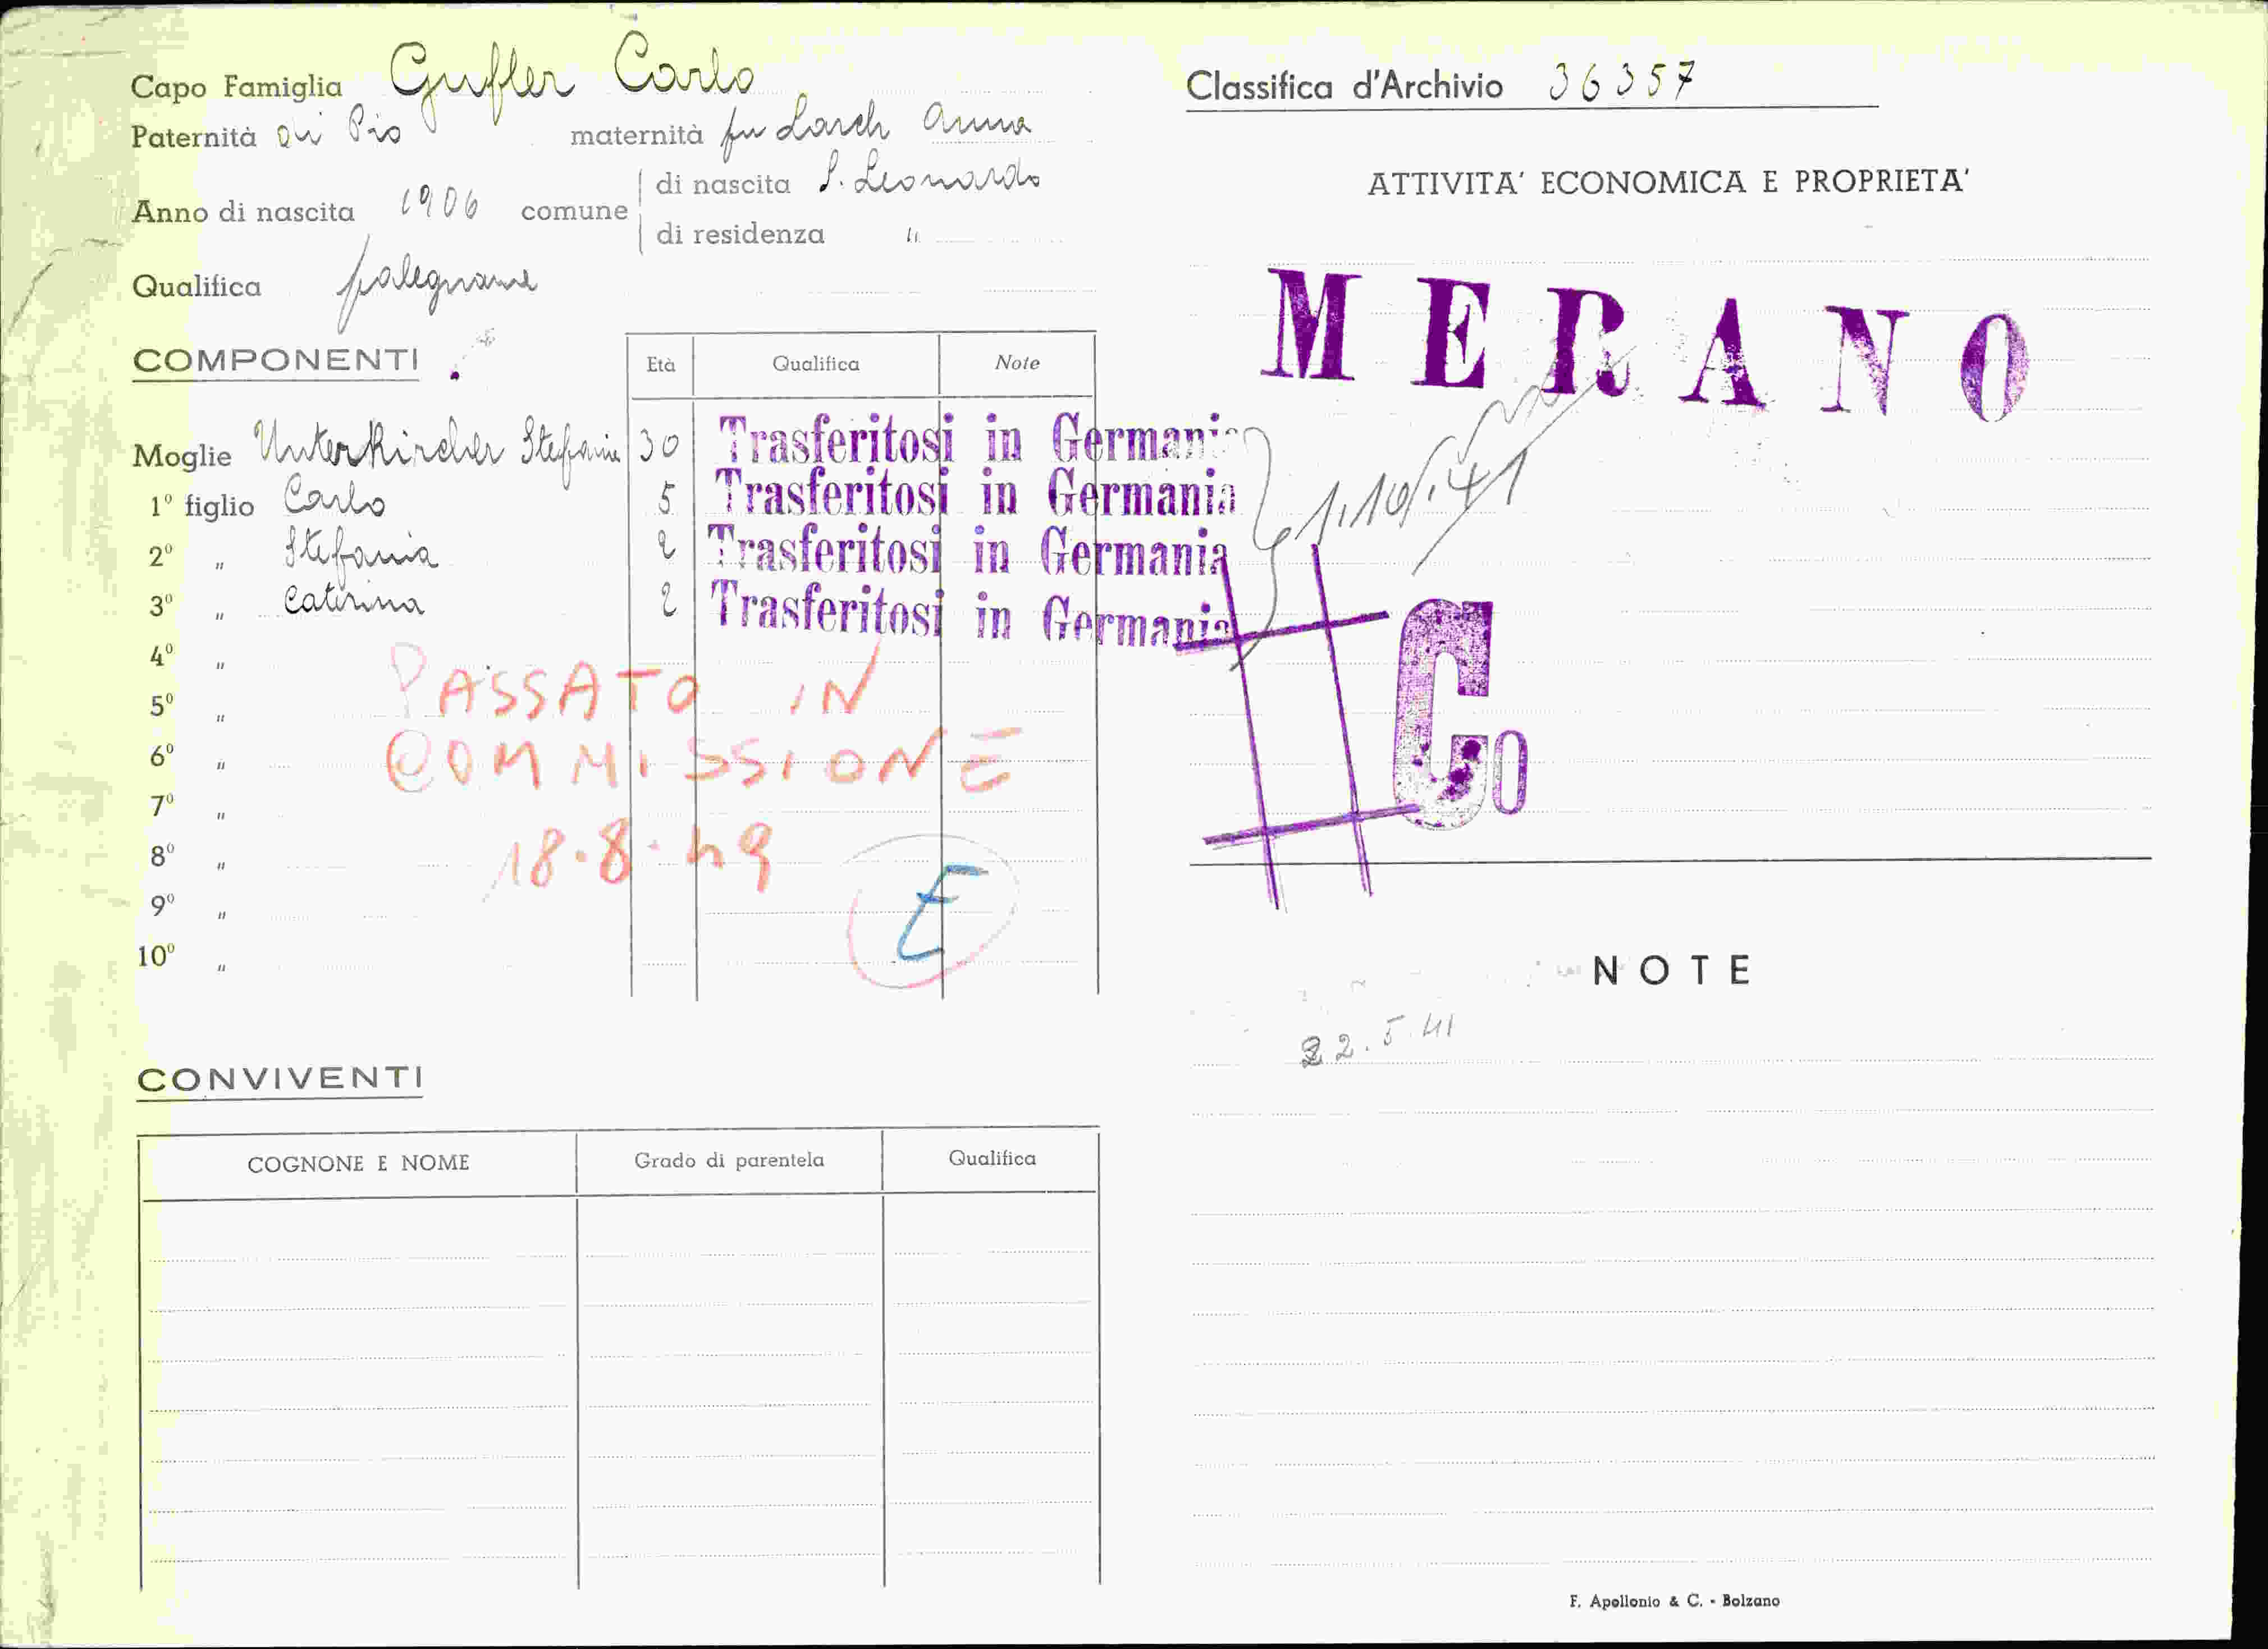 Capo Famiglia Gufler Carlo
Paternità di Pio maternità fu Larch Anna
Anno di nascita 1906 comune di nascita S. Leonardo
di residenza "
Qualifica falegname
COMPONENTI Età Qualifica Note
Moglie Unterkircher Stefania 30 Trasferitosi in Germania
1° figlio Carlo 5 Trasferitosi in Germania
2° " Stefania 2 Trasferitosi in Germania
3° " Caterina 2 Trasferitosi in Germania
4° "
5° "
6° "
7° "
8° "
9° "
10° "
PASSATO IN
COMMISSIONE
18.8.49
E
CONVIVENTI
COGNONE E NOME Grado di parentela Qualifica
Classifica d'Archivio 36357
ATTIVITA' ECONOMICA E PROPRIETA'
MERANO
1.10.41
Co
NOTE
22.5.41
F. Apollonio & C. - Bolzano